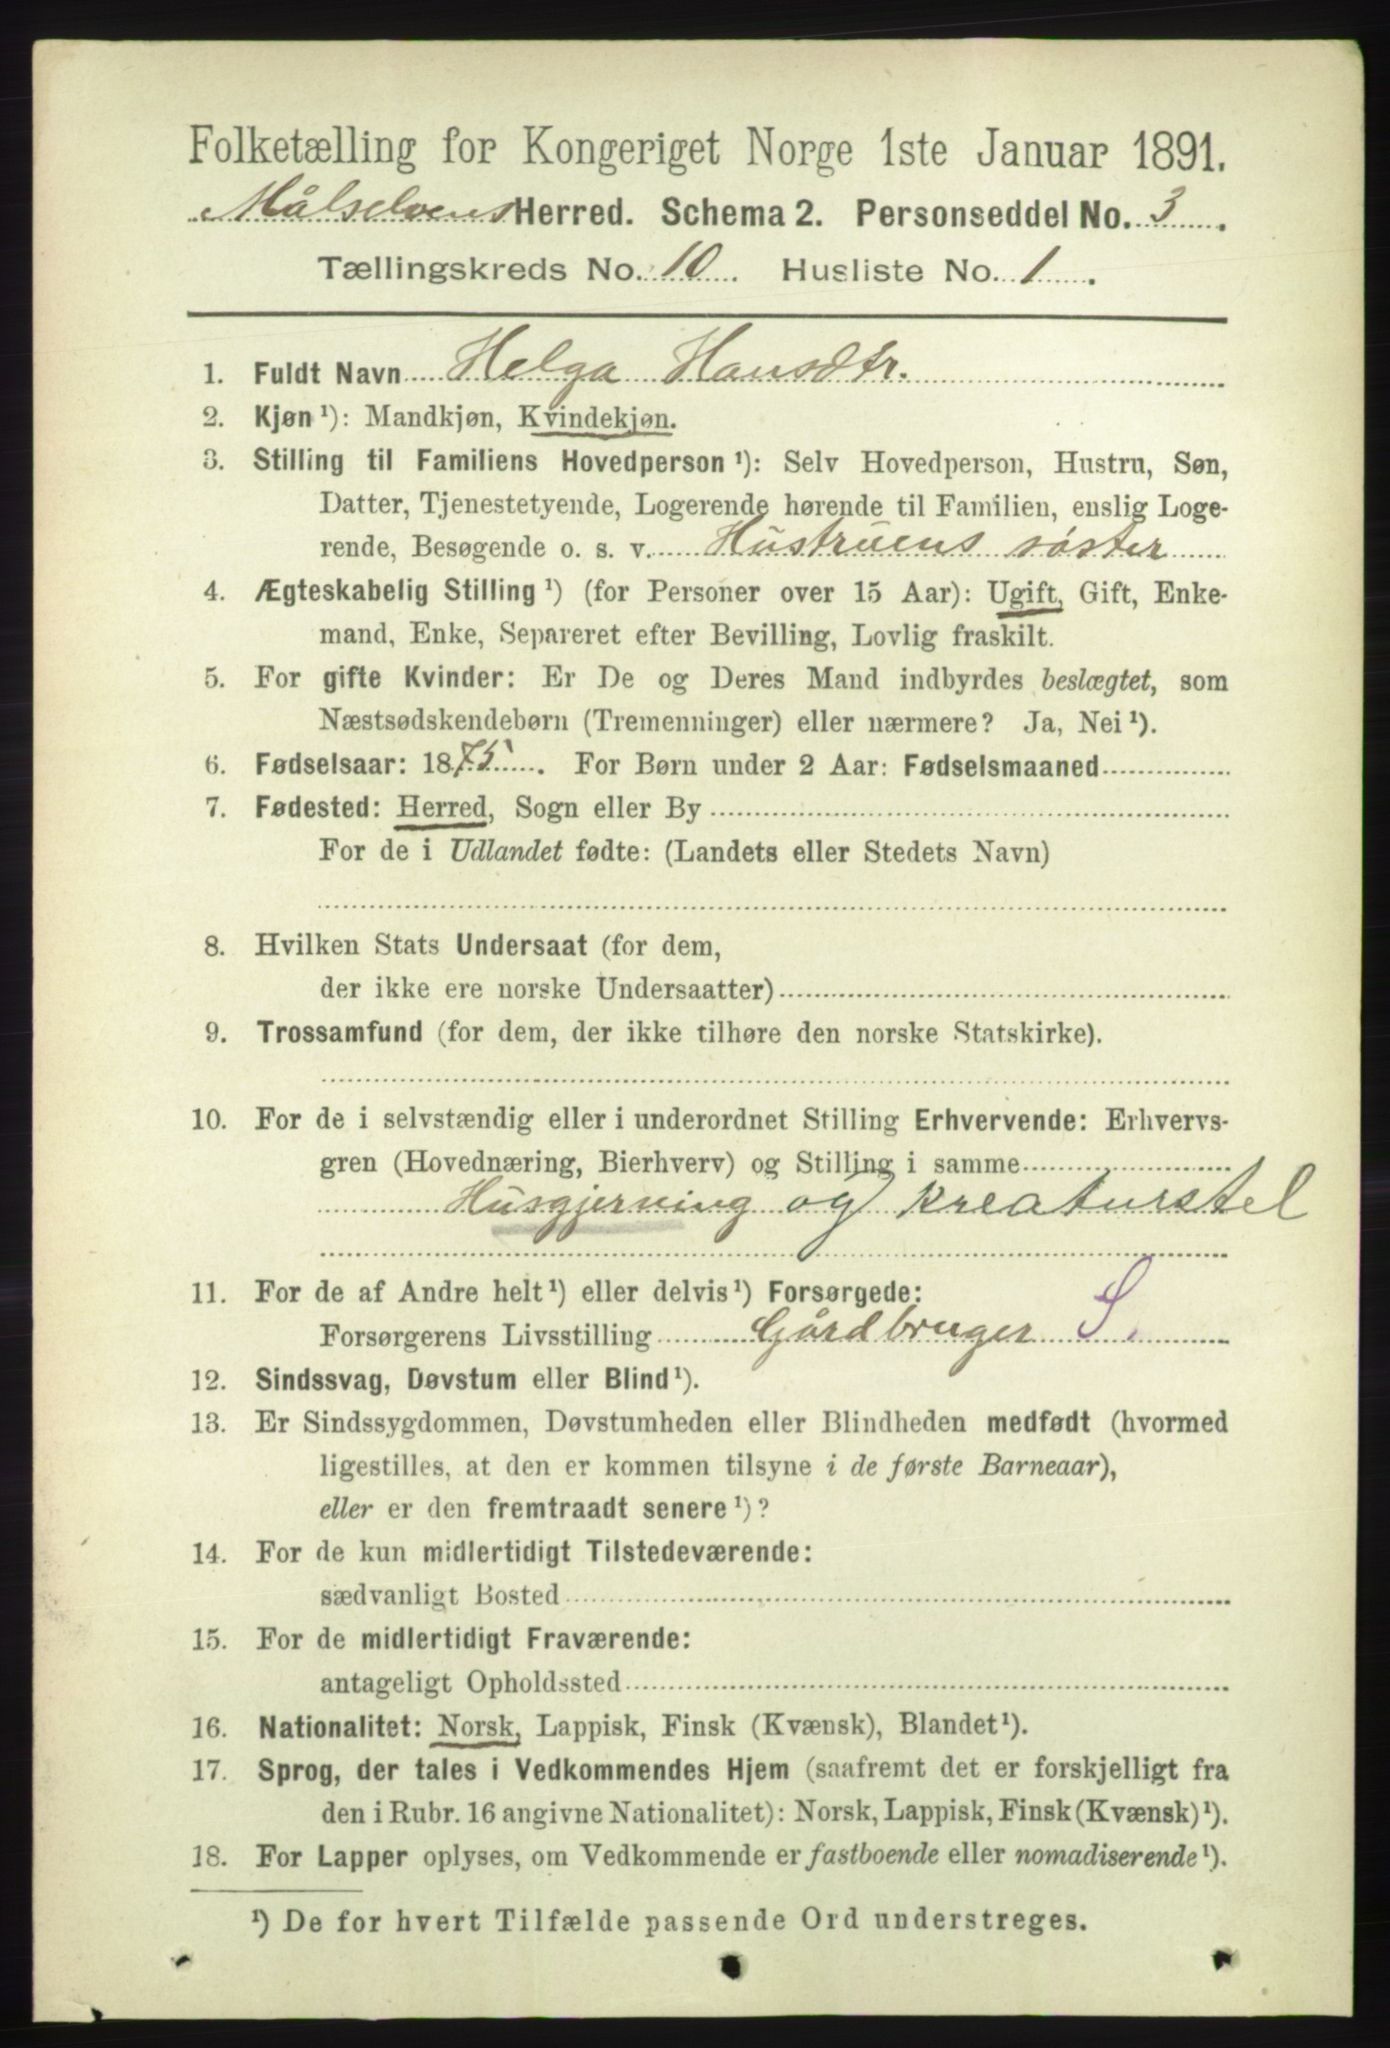 Folketælling for Kongeriget Norge 1ste Januar 1891.
Målselvens Herred. Schema 2. Personseddel No. 3.
Tællingskreds No. 10. Husliste No. 1.
1. Fuldt Navn Helga Hansdtr.
2. Kjøn ¹): Mandkjøn, Kvindekjøn.
3. Stilling til Familiens Hovedperson ¹): Selv Hovedperson, Hustru, Søn,
Datter, Tjenestetyende, Logerende hørende til Familien, enslig Loge-
rende, Besøgende o. s. v. Hustruens søster
4. Ægteskabelig Stilling ¹) (for Personer over 15 Aar): Ugift, Gift, Enke-
mand, Enke, Separeret efter Bevilling, Lovlig fraskilt.
5. For gifte Kvinder: Er De og Deres Mand indbyrdes beslægtet, som
Næstsødskendebørn (Tremenninger) eller nærmere? Ja, Nei ¹).
6. Fødselsaar: 1875. For Børn under 2 Aar: Fødselsmaaned
7. Fødested: Herred, Sogn eller By
For de i Udlandet fødte: (Landets eller Stedets Navn)
8. Hvilken Stats Undersaat (for dem,
der ikke ere norske Undersaatter)
9. Trossamfund (for dem, der ikke tilhøre den norske Statskirke).
10. For de i selvstændig eller i underordnet Stilling Erhvervende: Erhvervs-
gren (Hovednæring, Bierhverv) og Stilling i samme
Husgjerning og kreaturstel
11. For de af Andre helt ¹) eller delvis ¹) Forsørgede:
Forsørgerens Livsstilling Gårdbruger S.
12. Sindssvag, Døvstum eller Blind ¹).
13. Er Sindssygdommen, Døvstumheden eller Blindheden medfødt (hvormed
ligestilles, at den er kommen tilsyne i de første Barneaar),
eller er den fremtraadt senere ¹)?
14. For de kun midlertidigt Tilstedeværende:
sædvanligt Bosted
15. For de midlertidigt Fraværende:
antageligt Opholdssted
16. Nationalitet: Norsk, Lappisk, Finsk (Kvænsk), Blandet ¹).
17. Sprog, der tales i Vedkommendes Hjem (saafremt det er forskjelligt fra
den i Rubr. 16 angivne Nationalitet): Norsk, Lappisk, Finsk (Kvænsk) ¹).
18. For Lapper oplyses, om Vedkommende er fastboende eller nomadiserende ¹).
¹) De for hvert Tilfælde passende Ord understreges.